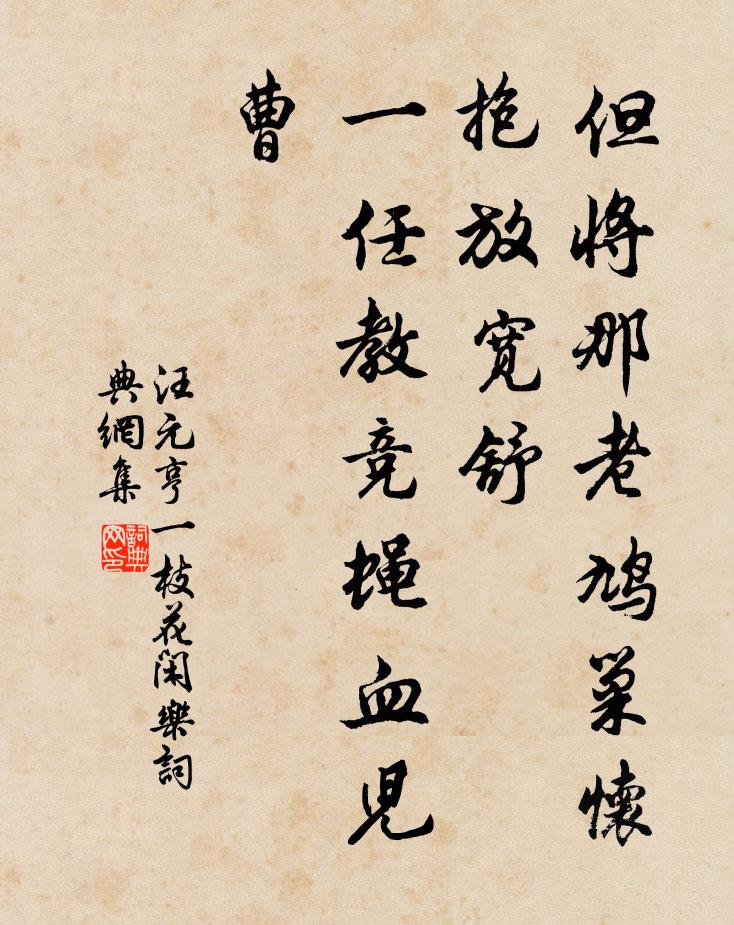 但將那老鳩巢懷
抱放寬舒
一任教竞蝇血児
曹
汪元亨一枝花閑樂詞
典網集
詞典
网印